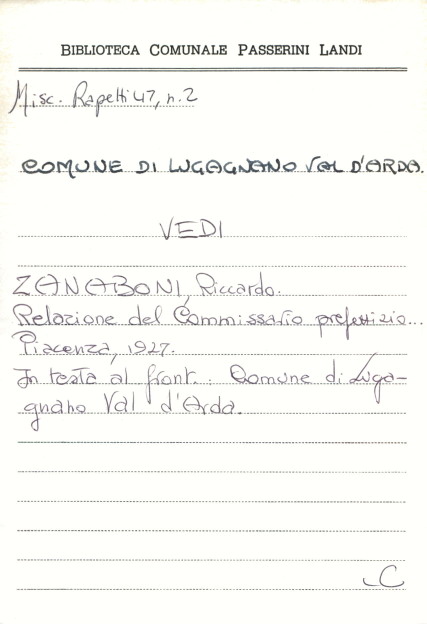 BIBLIOTECA COMUNALE PASSERINI LANDI
Misc. Rapetti 47, n. 2
COMUNE DI LUGAGNANO VAL D'ARDA.
VEDI
ZANABONI, Riccardo.
Relazione del Commissario prefettizio...
Piacenza, 1927.
In testa al front.: Comune di Luga-
gnano Val d'Arda.
C